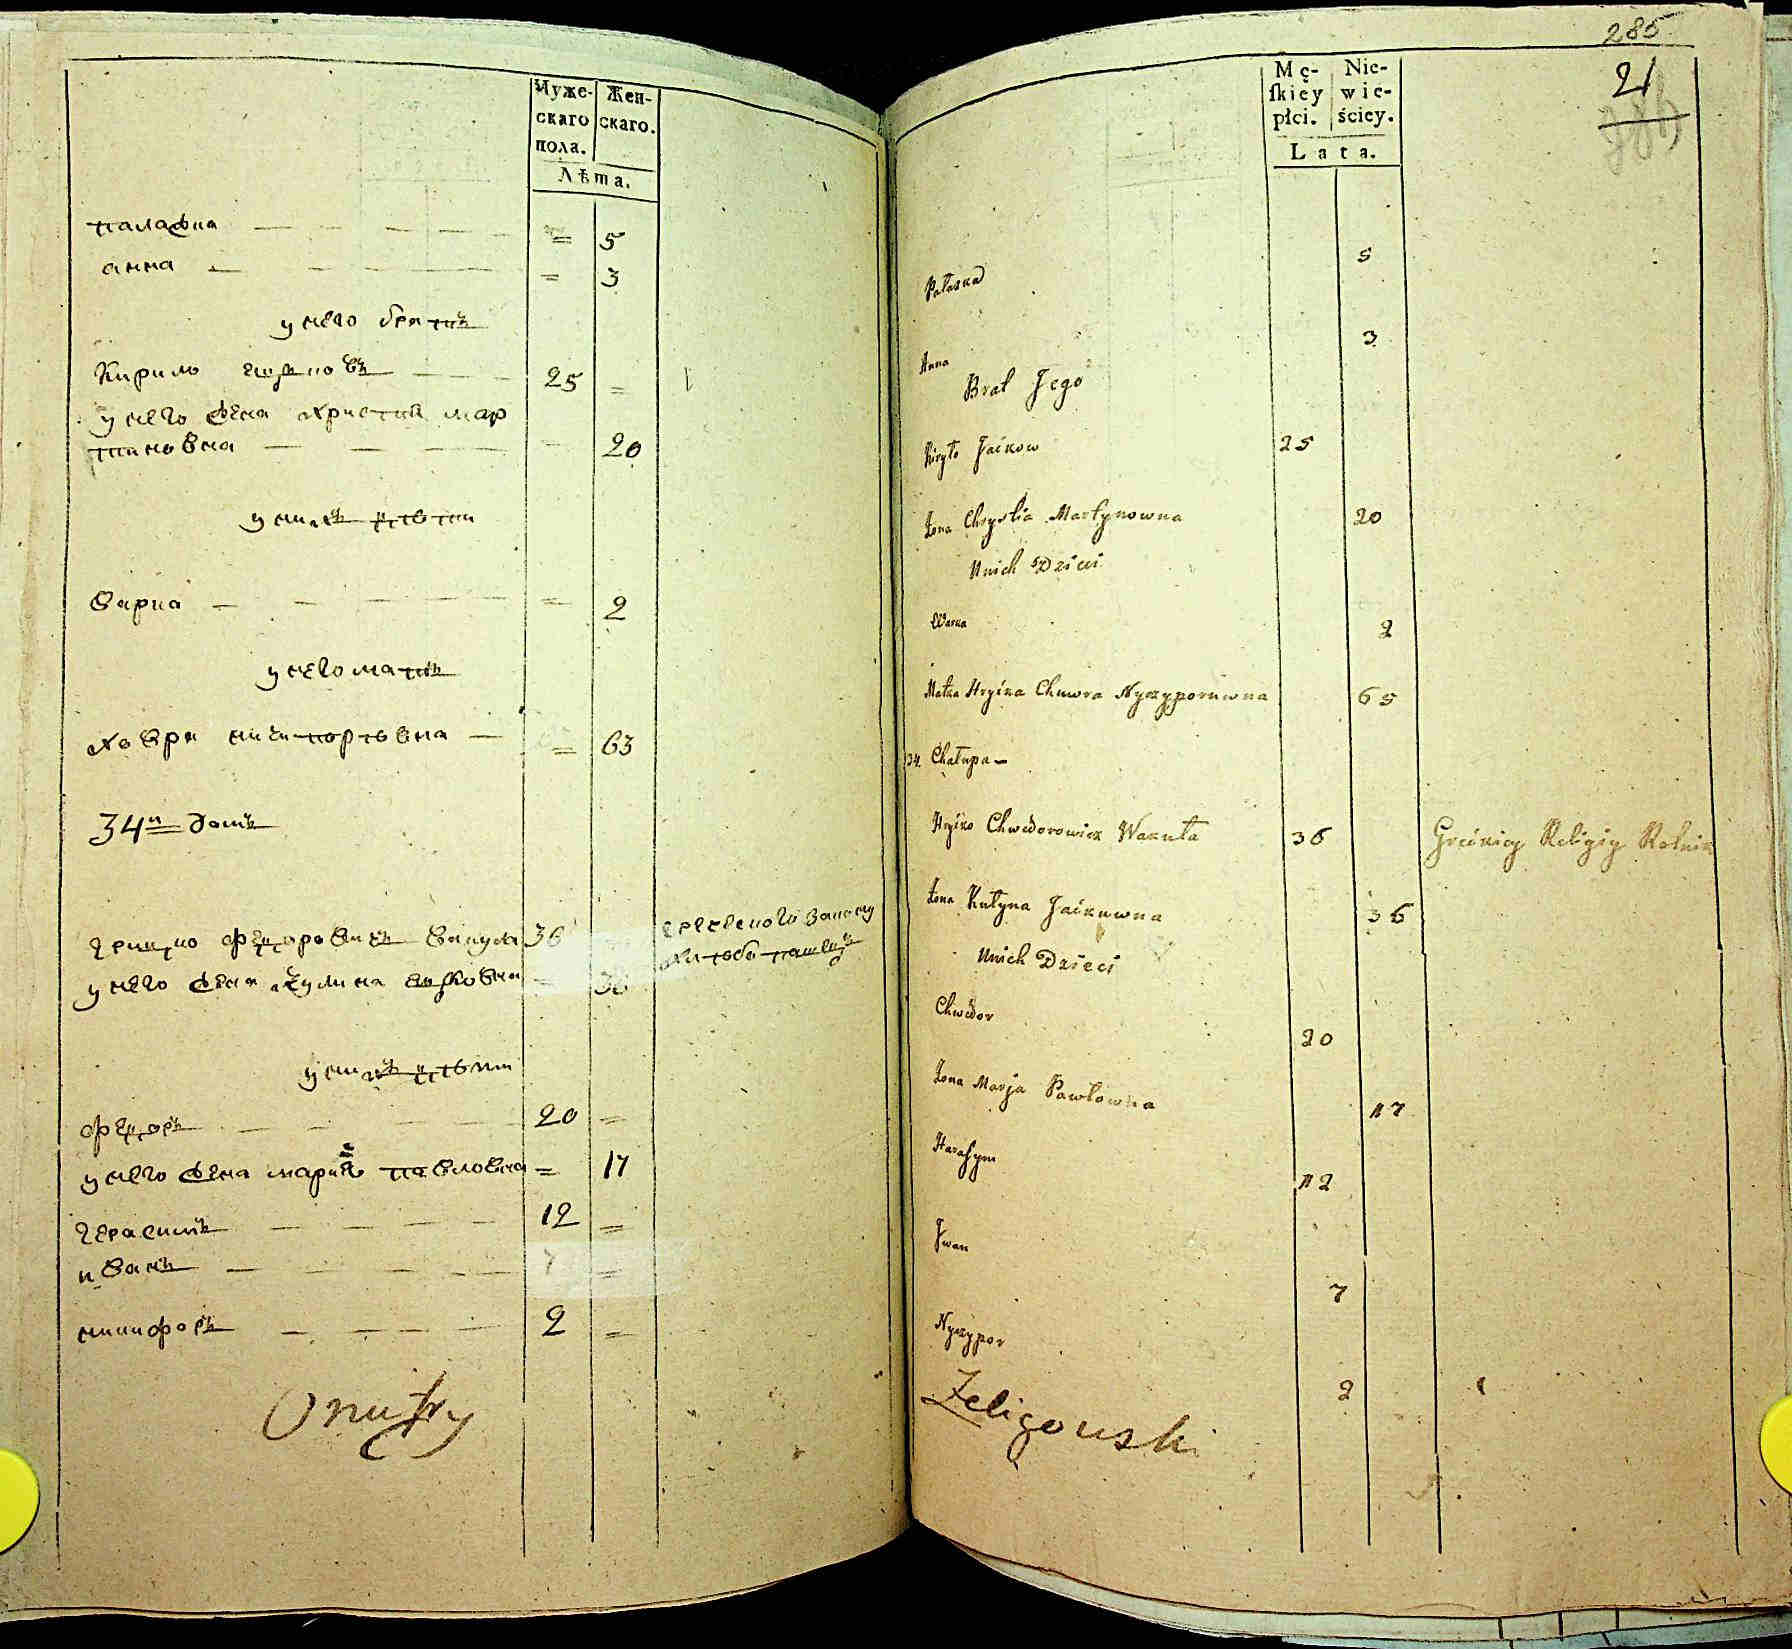 Мужескаго пола. Женскаго.
Лѣта.
палажка — — — — = 5
анна — — — — = 3
у него братъ
Кирило яцковъ — — 25 =
у него жена христина мар
тиновна — — — 20
у нихъ дѣти
варка — — — — = 2
у него мать
ховра ничипоровна — = 63
34й домъ
грицко фѣдоровичь вакула 36
у него жена акулина яцковна — 36
греческого закону
хлѣбопашецъ
у нихъ дѣти
фѣдоръ — — — — 20 =
у него жена мария павловна = 17
герасимъ — — — — 12 =
иванъ — — — — 7 =
никифоръ — — — — 2 =
285
21
Męſkiey płci. Niewieściey.
Lata.
Pałaszka 5
Anna 3
Brat Jego
Kiryło Jaćkow 25
Żona Chrystia Martynowna 20
U nich Dzieci
Warka 2
Matka Hryćka Chuwra Nyczyporuwna 65
34. Chałupa —
Hryćko Chwedorowicz Wakuła 36 Grećkiey Religiy Rolnik
Żona Kułyna Jaćkuwna 36
U nich Dzieci
Chwedor 20
Żona Marja Pawłowna 17
Harasym 12
Jwan 7
Nyczypor 2
Żeligowski